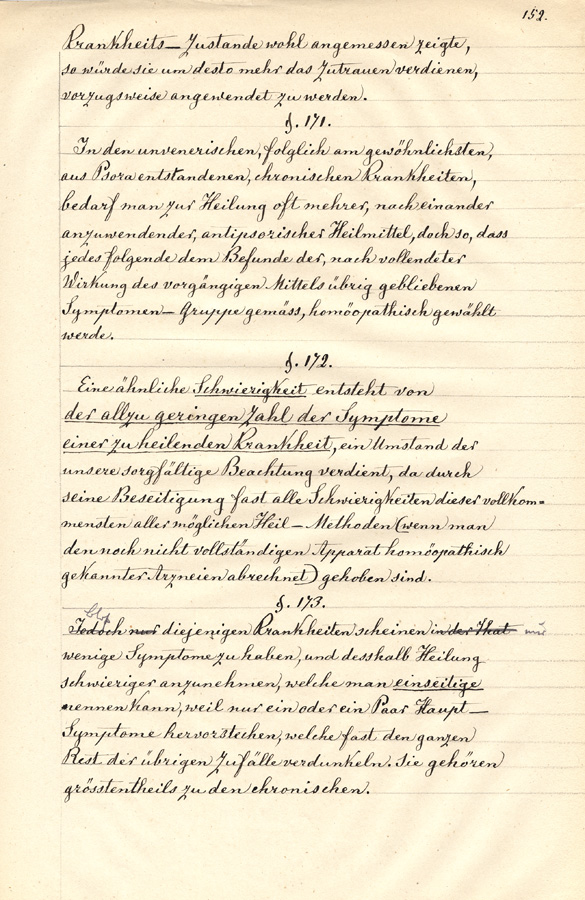 152.
Krankheits-Zustande wohl angemessen zeigte,
so würde sie um desto mehr das Zutrauen verdienen,
vorzugsweise angewendet zu werden.
§. 171.
In den unvenerischen, folglich am gewöhnlichsten,
aus Psora entstandenen, chronischen Krankheiten,
bedarf man zur Heilung oft mehrer, nach einander
anzuwendender, antipsorischer Heilmittel, doch so, dass
jedes folgende dem Befunde der, nach vollendeter
Wirkung des vorgängigen Mittels übrig gebliebenen
Symptomen-Gruppe gemäss, homöopathisch gewählt
werde.
§. 172.
Eine ähnliche Schwierigkeit entsteht von
der allzu geringen Zahl der Symptome
einer zu heilenden Krankheit, ein Umstand der
unsere sorgfältige Beachtung verdient, da durch
seine Beseitigung fast alle Schwierigkeiten dieser vollkom=
mensten aller möglichen Heil-Methoden (wenn man
den noch nicht vollständigen Apparat homöopathisch
gekannter Arzneien abrechnet) gehoben sind.
§. 173.
Blos
Jedoch nur diejenigen Krankheiten scheinen in der That nur
wenige Symptome zu haben, und desshalb Heilung
schwieriger anzunehmen, welche man einseitige
nennen kann, weil nur ein oder ein Paar Haupt-
Symptome hervorstechen, welche fast den ganzen
Rest der übrigen Zufälle verdunkeln. Sie gehören
grösstentheils zu den chronischen.